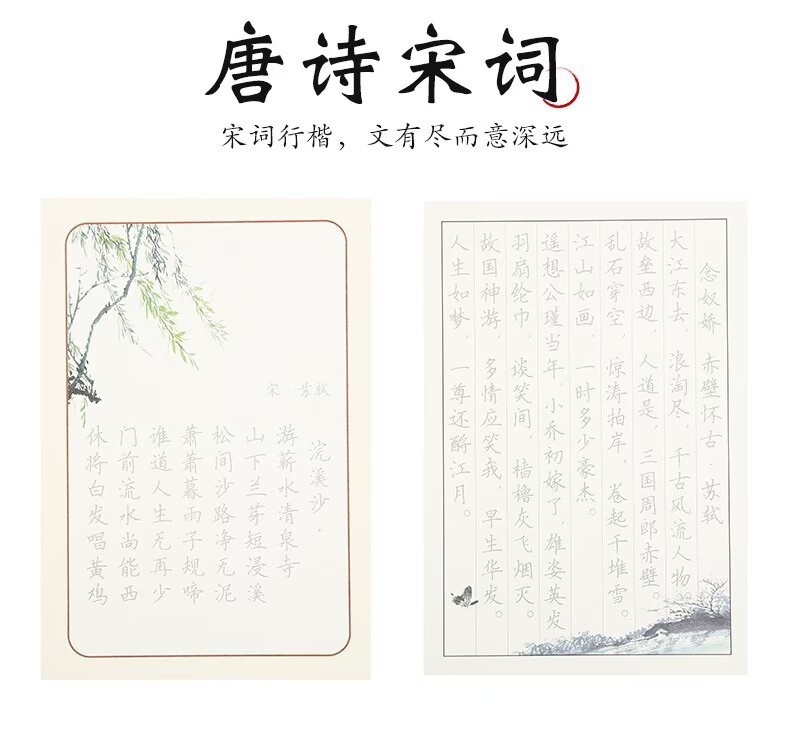 唐诗宋词
宋词行楷，文有尽而意深远
宋·苏轼
浣溪沙·
游蕲水清泉寺
山下兰芽短浸溪
松间沙路净无泥
萧萧暮雨子规啼
谁道人生无再少
门前流水尚能西
休将白发唱黄鸡
念奴娇 赤壁怀古·苏轼
大江东去，浪淘尽，千古风流人物。
故垒西边，人道是，三国周郎赤壁。
乱石穿空，惊涛拍岸，卷起千堆雪。
江山如画，一时多少豪杰。
遥想公瑾当年，小乔初嫁了，雄姿英发
羽扇纶巾，谈笑间，樯橹灰飞烟灭。
故国神游，多情应笑我，早生华发。
人生如梦，一尊还酹江月。